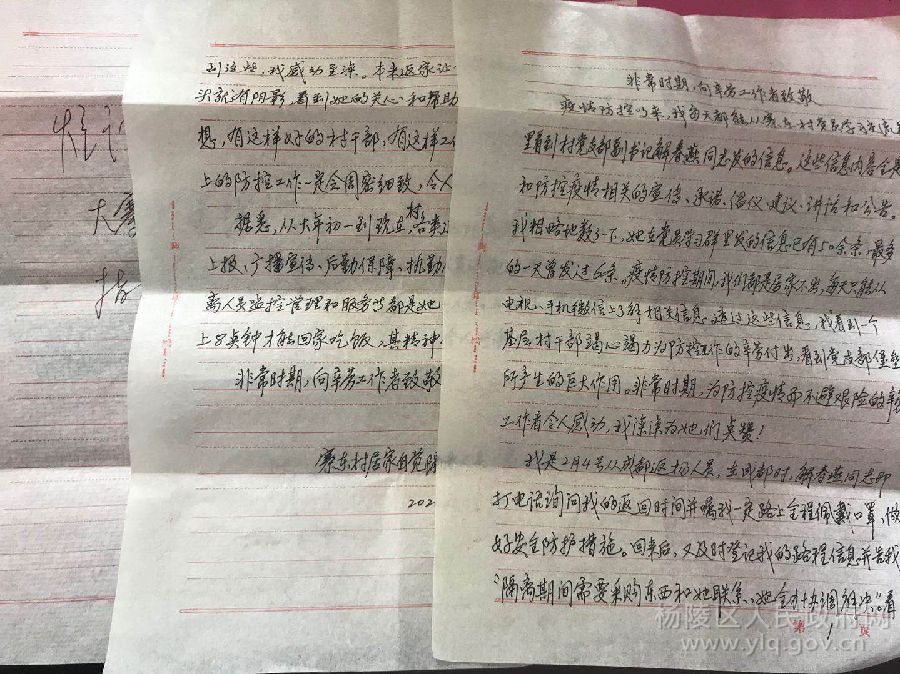 非常时期,向辛劳工作者致敬
疫情防控以来,我每天都能从
里看到村党支部副书记解春燕同志发的信息。这些信息内容全是
和防控疫情相关的宣传、承诺、倡仪、建议、讲话和公告。
我粗略地数了下,她在党员学习群里发的信息已有50余条,最多
的一天曾发过 条。疫情防控期间,我们都是居家不出,每天只能从
电视、手机微信上了解相关信息。通过这些信息,我看到一个
基层村干部竭心竭力为防控工作的辛劳付出,看到党支部堡垒
所产生的巨大作用。非常时期,为防控疫情而不避艰险的辛
工作者令人感动,我深深为她们点赞!
我是2月4号从成都返杨人员,在成都时,解春燕同志即
打电话询问我的返回时间并嘱我一定路上全程佩戴口罩,做
好安全防护措施。回来后,又及时登记我的路程信息并告我
“隔离期间需要采购东西和她联系,她全力协调解决。”看
第 1 页
到这些,我感动至深。本来返家让
沢新 阴影,看到她的关心和帮助
想,有这样好的村干部,有这样工
上的防控工作一定会周密细致,令人
据悉,从大年初一到现在,村
上报、广播宣传、后勤保障、执勤
离人员监控管理和服务等都是她
上8点钟才能回家吃饭,其精神
非常时期,向辛劳工作者致敬
寨东村居家自觉隔
202
大寨
杨陵区人民政府网
www.ylq.gov.cn